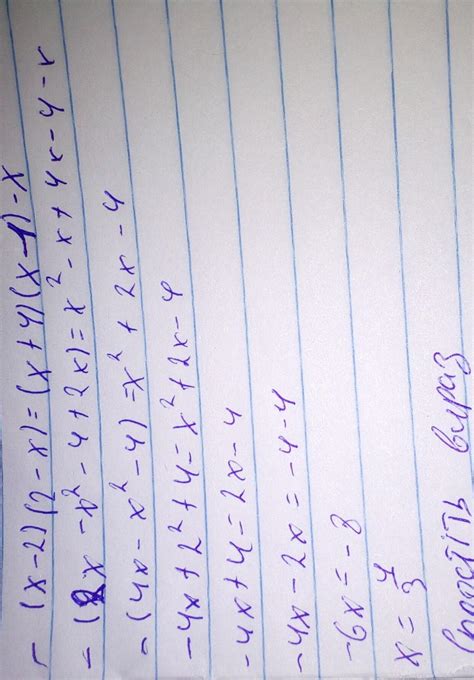 - (x-2)(2-x)=(x+4)(x-1)-x
- (2x-x²-4+2x)=x²-x+4x-4-x
- (4x-x²-4)=x²+2x-4
-4x+2²+4=x²+2x-4
-4x+4=2x-4
-4x-2x=-4-4
-6x=-8
x=4/3
вираз